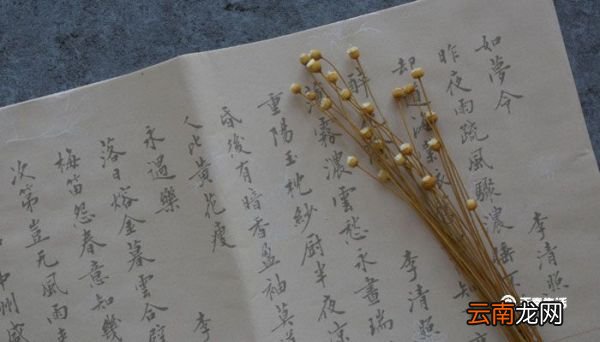 如夢令 李清照
昨夜雨疏風驟濃睡
却道海棠依
醉 李清照
霧濃雲愁永晝瑞
重陽玉枕紗厨半夜涼
昏後有暗香盈袖莫道
人比黃花瘦
永遇樂 李
落日熔金暮雲合璧
梅笛怨春意知幾
次第豈无風雨
中州盛
云南龙网